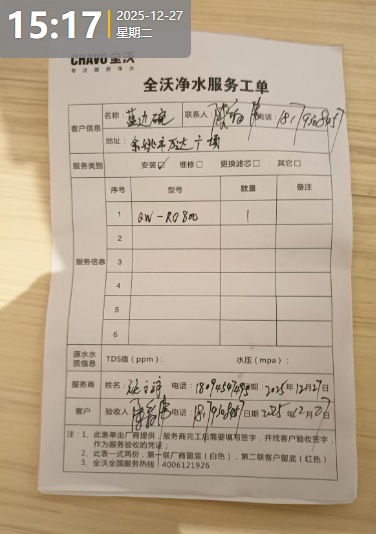 15:17
2025-12-27
星期二
CHAVO 全沃
专注厨房净水
全沃净水服务工单
客户信息
名称：蓝边碗 联系人 电话：
地址：余姚市万达广场
服务类别 安装☑ 维修□ 更换滤芯□ 其它□
服务信息
序号 型号 数量 备注
1 QW-RO800 1
2
3
4
5
6
源水水质信息 TDS值（ppm）： 水压（mpa）：
服务商 姓名： 电话： 日期：2025年12月27日
客户 验收人 电话： 日期2025年12月27日
注：1、此表单由厂商提供，服务商完工后需要填写签字，并找客户验收签字，
作为服务验收的凭证；
2、此表一式两份，第一联厂商留底（白色），第二联客户留底（红色）
3、全沃全国服务热线：4006121926